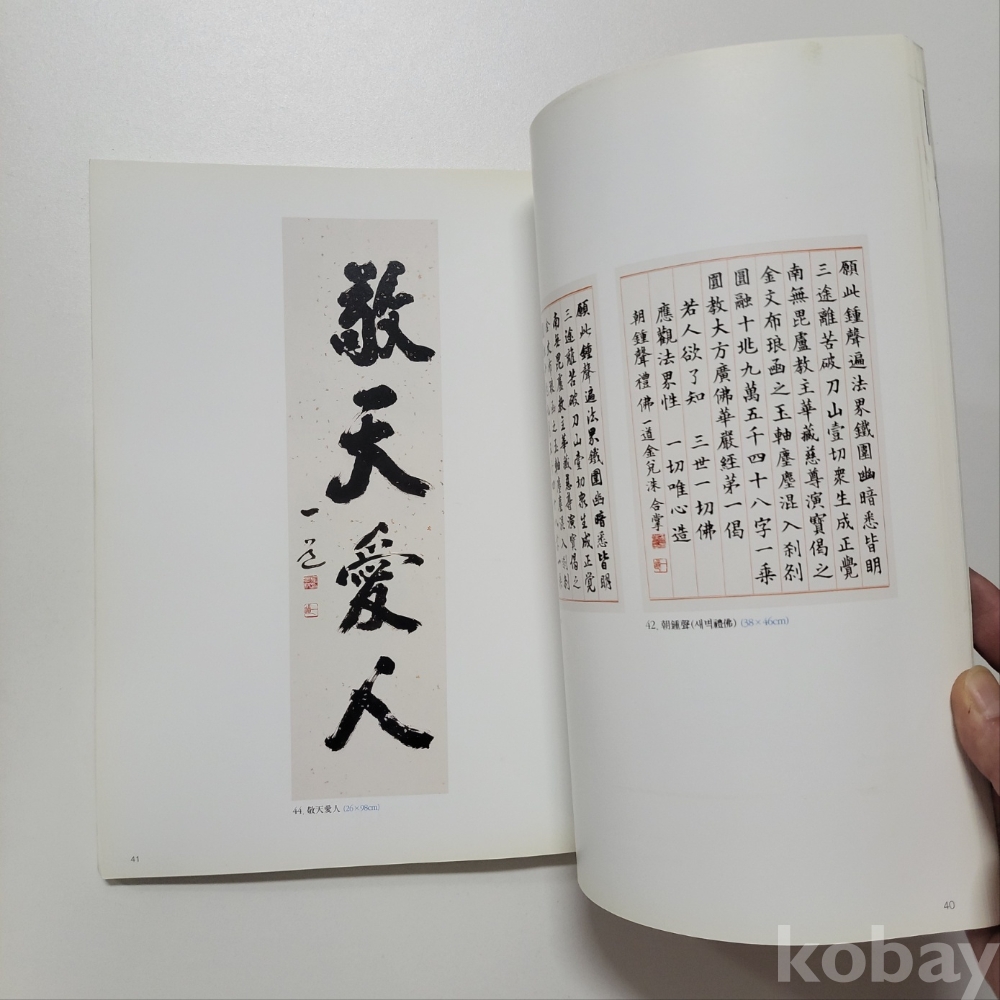 願此鍾聲遍法界鐵圍幽暗悉皆明
三途離苦破刀山壹切衆生成正覺
南無毘盧教主華藏慈尊演寶偈之
金文布琅函之玉軸塵塵混入刹刹
圓融十兆九萬五千四十八字一乗
圓教大方廣佛華嚴經第一偈
若人欲了知 三世一切佛
應觀法界性 一切唯心造
朝鍾聲禮佛 一道金兌洙 合掌
願此鍾聲遍法界鐵圍幽暗悉皆明
三途離苦破刀山壹切衆生成正覺
南無毘盧教主華藏慈尊演寶偈之
42. 朝鍾聲(새벽禮佛) (38×46cm)
40
敬天愛人
一道
44. 敬天愛人 (26×98cm)
41
kobay